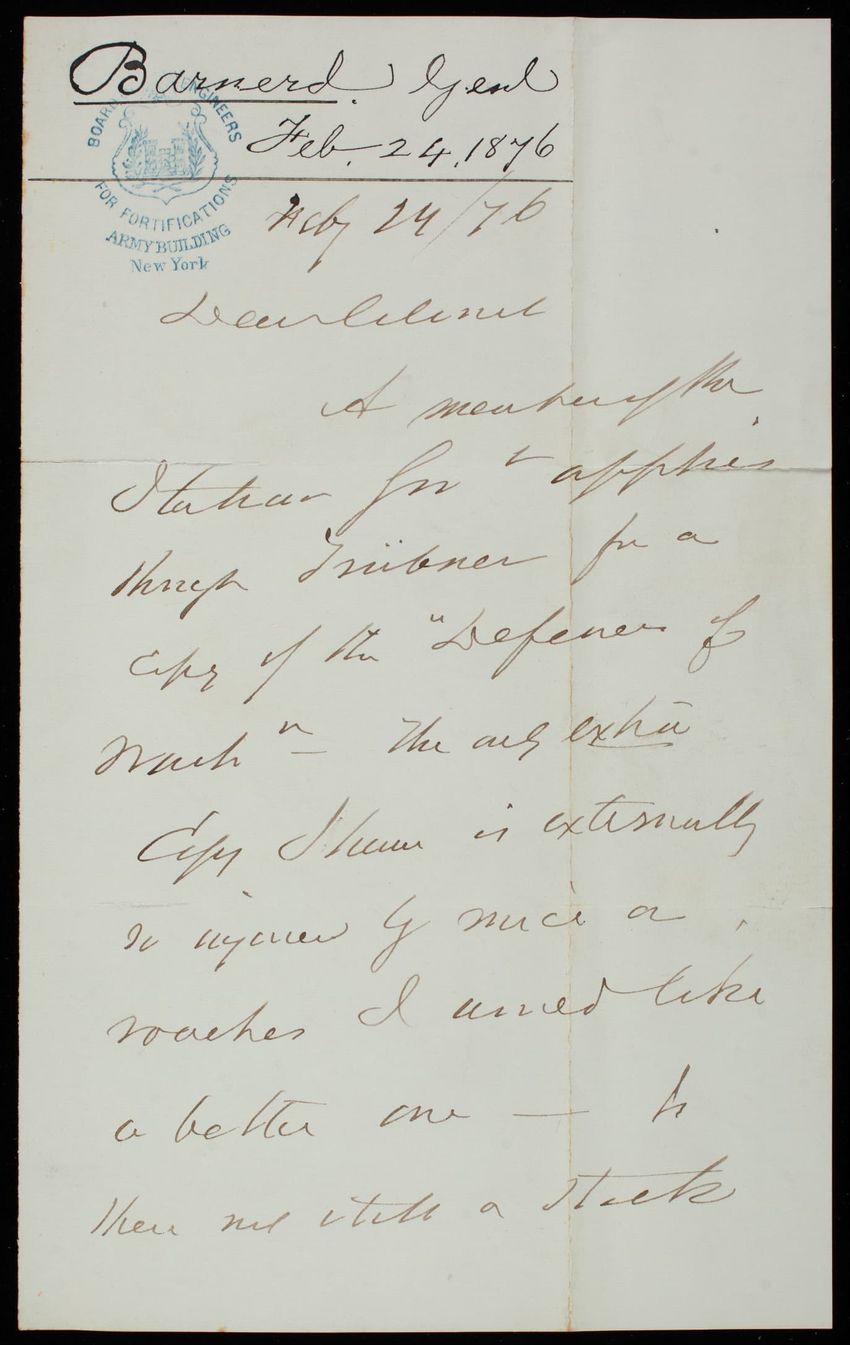 Barnerd. Genl
Feb. 24, 1876
BOARD OF ENGINEERS
FOR FORTIFICATIONS
ARMY BUILDING
New York
Feby 24/76
Dear Colonel
A member of the
Italian Gov t applies
through Trübner for a
copy of the "Defences of
Wash n – The only extra
Copy I have is externally
so injured by mice or
roaches I would like
a better one — Is
there not still a stock